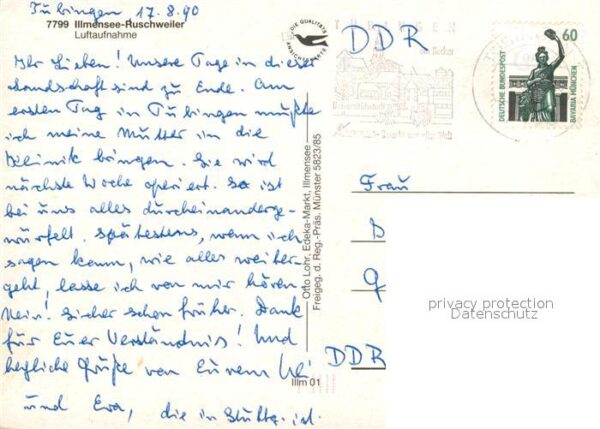 Tübingen 17.8.90
7799 Illmensee-Ruschweiler
Luftaufnahme
Ihr Lieben! Unsere Tage in dieser
Landschaft sind zu Ende. Am
ersten Tag in Tübingen mußte
ich meine Mutter in die
Klinik bringen. Sie wird
nächste Woche operiert. So ist
bei uns alles durcheinanderge-
würfelt. Spätestens, wenn ich
sagen kann, wie alles weiter-
geht, lasse ich von mir hören.
Nein! Sicher schon früher. Dank
für Euer Verständnis! Und
herzliche Grüße von Eurem Uli
und Eva, die in Stuttg. ist.
DIE QUALITÄTS
ANSICHTSKARTE
Otto Lohr, Edeka-Markt, Illmensee
Freigeg. d. Reg.-Präs. Münster 5823/85
Illm 01
DDR
am Neckar
Universitätsstadt
60
DEUTSCHE BUNDESPOST
BAVARIA MÜNCHEN
Frau
D
Q
DDR
privacy protection
Datenschutz